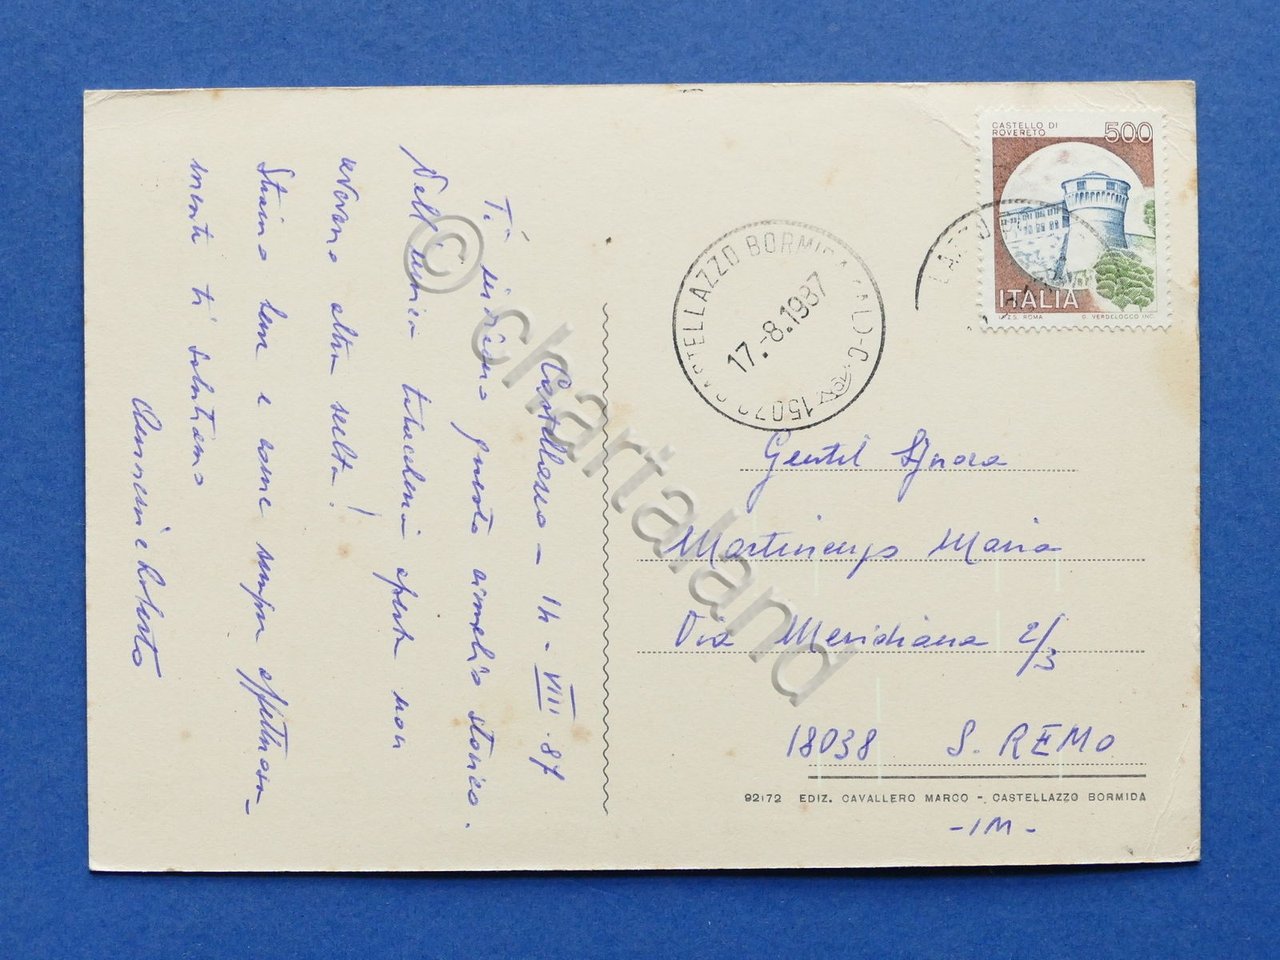 CASTELLO DI
ROVERETO
500
ITALIA
I.P.Z.S. ROMA
G. VERDELOCCO INC.
15073 CASTELLAZZO BORMIDA (AL)
17.-8.1987
LAZZO
Castellazzo - 14 - VIII - 87
Ti invio questo cimelio storico.
Dell'unica tabaccheria aperta non
avevano altra scelta!
Stiamo bene e come sempre affettuosa-
mente ti salutiamo
e Roberto
Gentil Signora
Martinengo Maria
Via Meridiana 2/3
18038 S. REMO
92172 EDIZ. CAVALLERO MARCO - CASTELLAZZO BORMIDA
- IM -
© chartaland